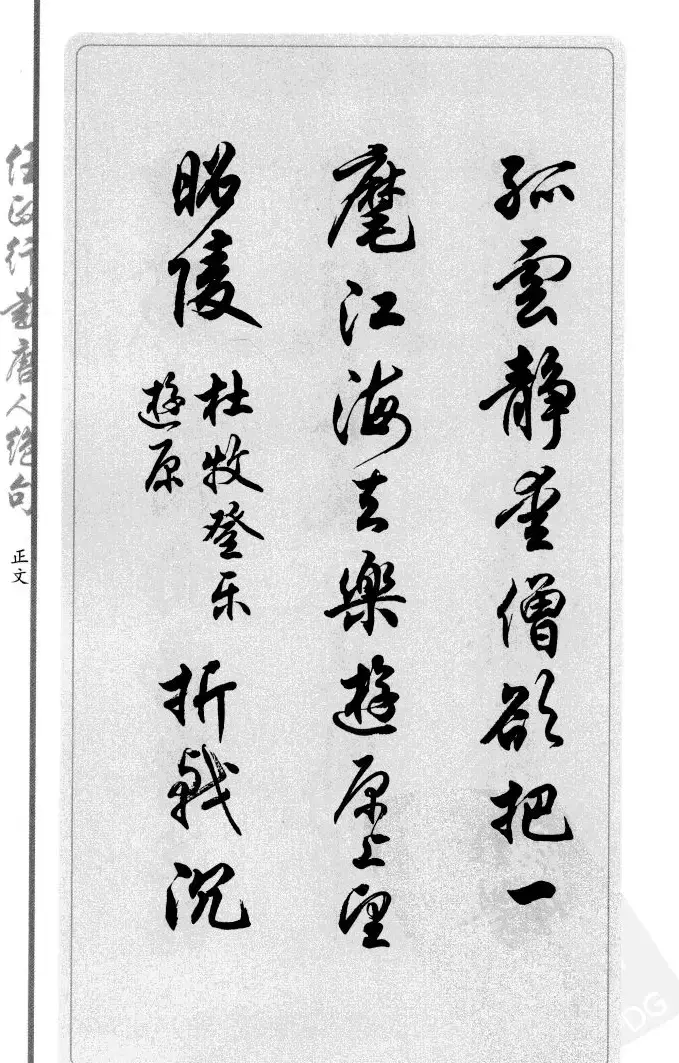 孤雲静爱僧欲把一
麾江海去樂遊原上望
昭陵
杜牧登乐
遊原
折戟沉
任政行書唐人绝句
正文
DG